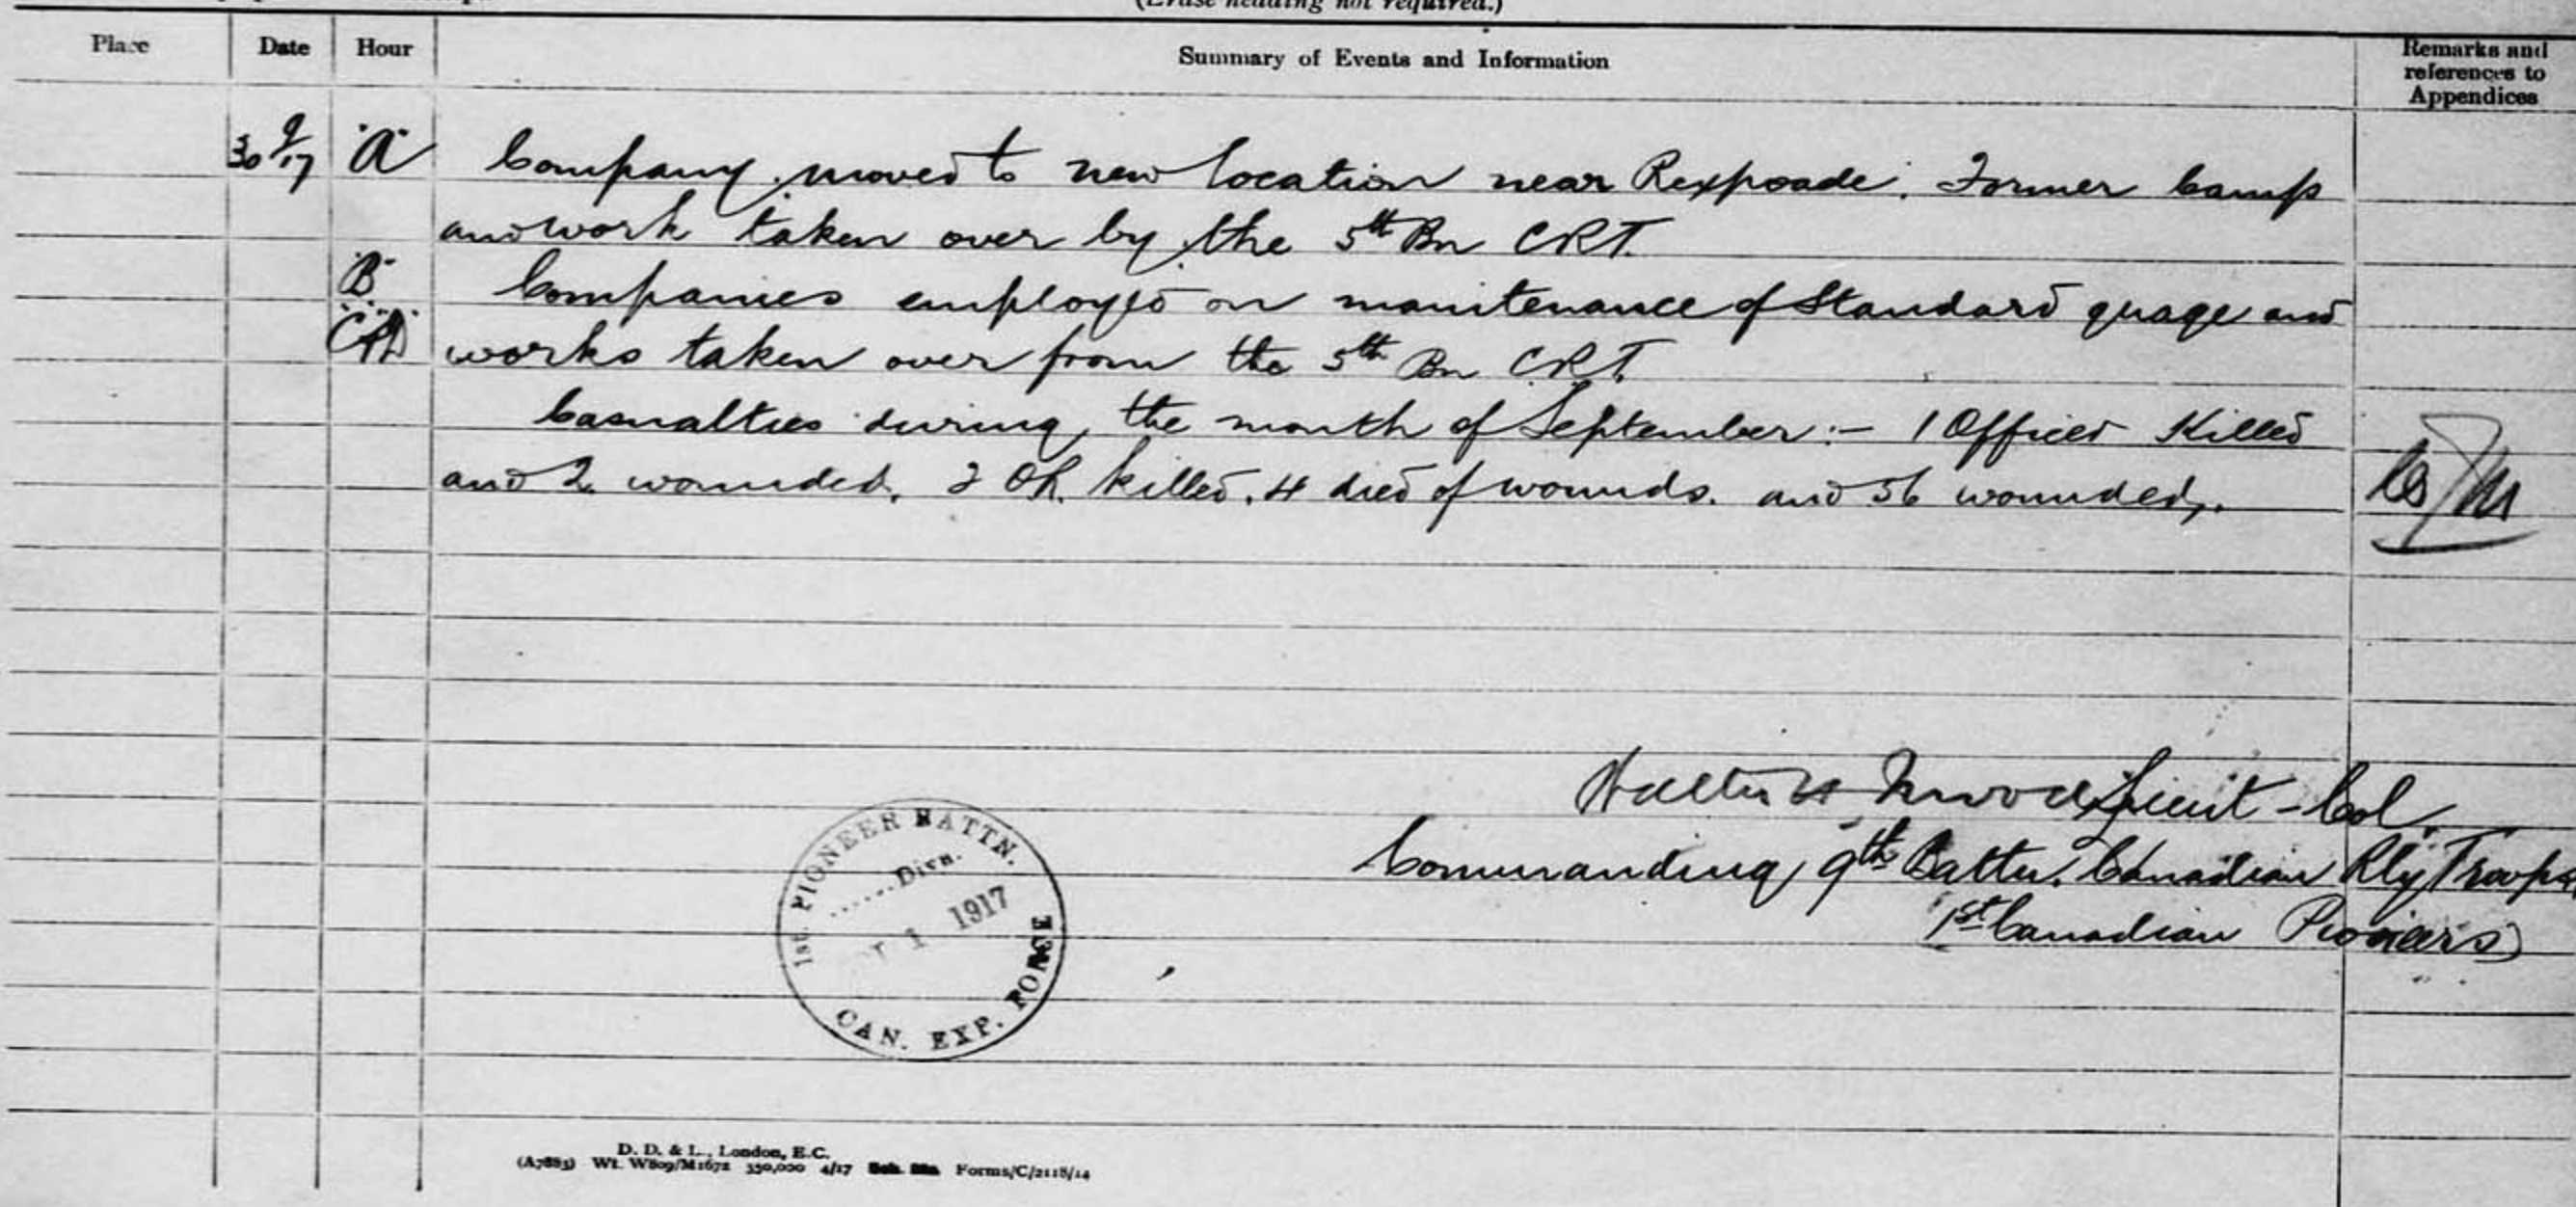 (Erase heading not required.)
Place Date Hour Summary of Events and Information Remarks and
references to
Appendices
30/9/17 "A" Company moved to new location near Rexpoade. Former Camp
and work taken over by the 5th Bn CRT.
"B" Companies employed on maintenance of Standard guage and
"C" & "D" works taken over from the 5th Bn CRT.
Casualties during the month of September :- 1 Officer Killed
and 2 wounded. OR. killed. 4 died of wounds. and 56 wounded.
Walter Lieut-Col.
Commanding 9th Battn. Canadian Rly Troops
1st Canadian Pioneers
1st. PIONEER BATTN.
......Divn.
1 1917
CAN. EXP. FORCE
D. D. & L., London, E.C.
(A7883) Wt. W809/M1672 350,000 4/17 Forms/C/2118/14